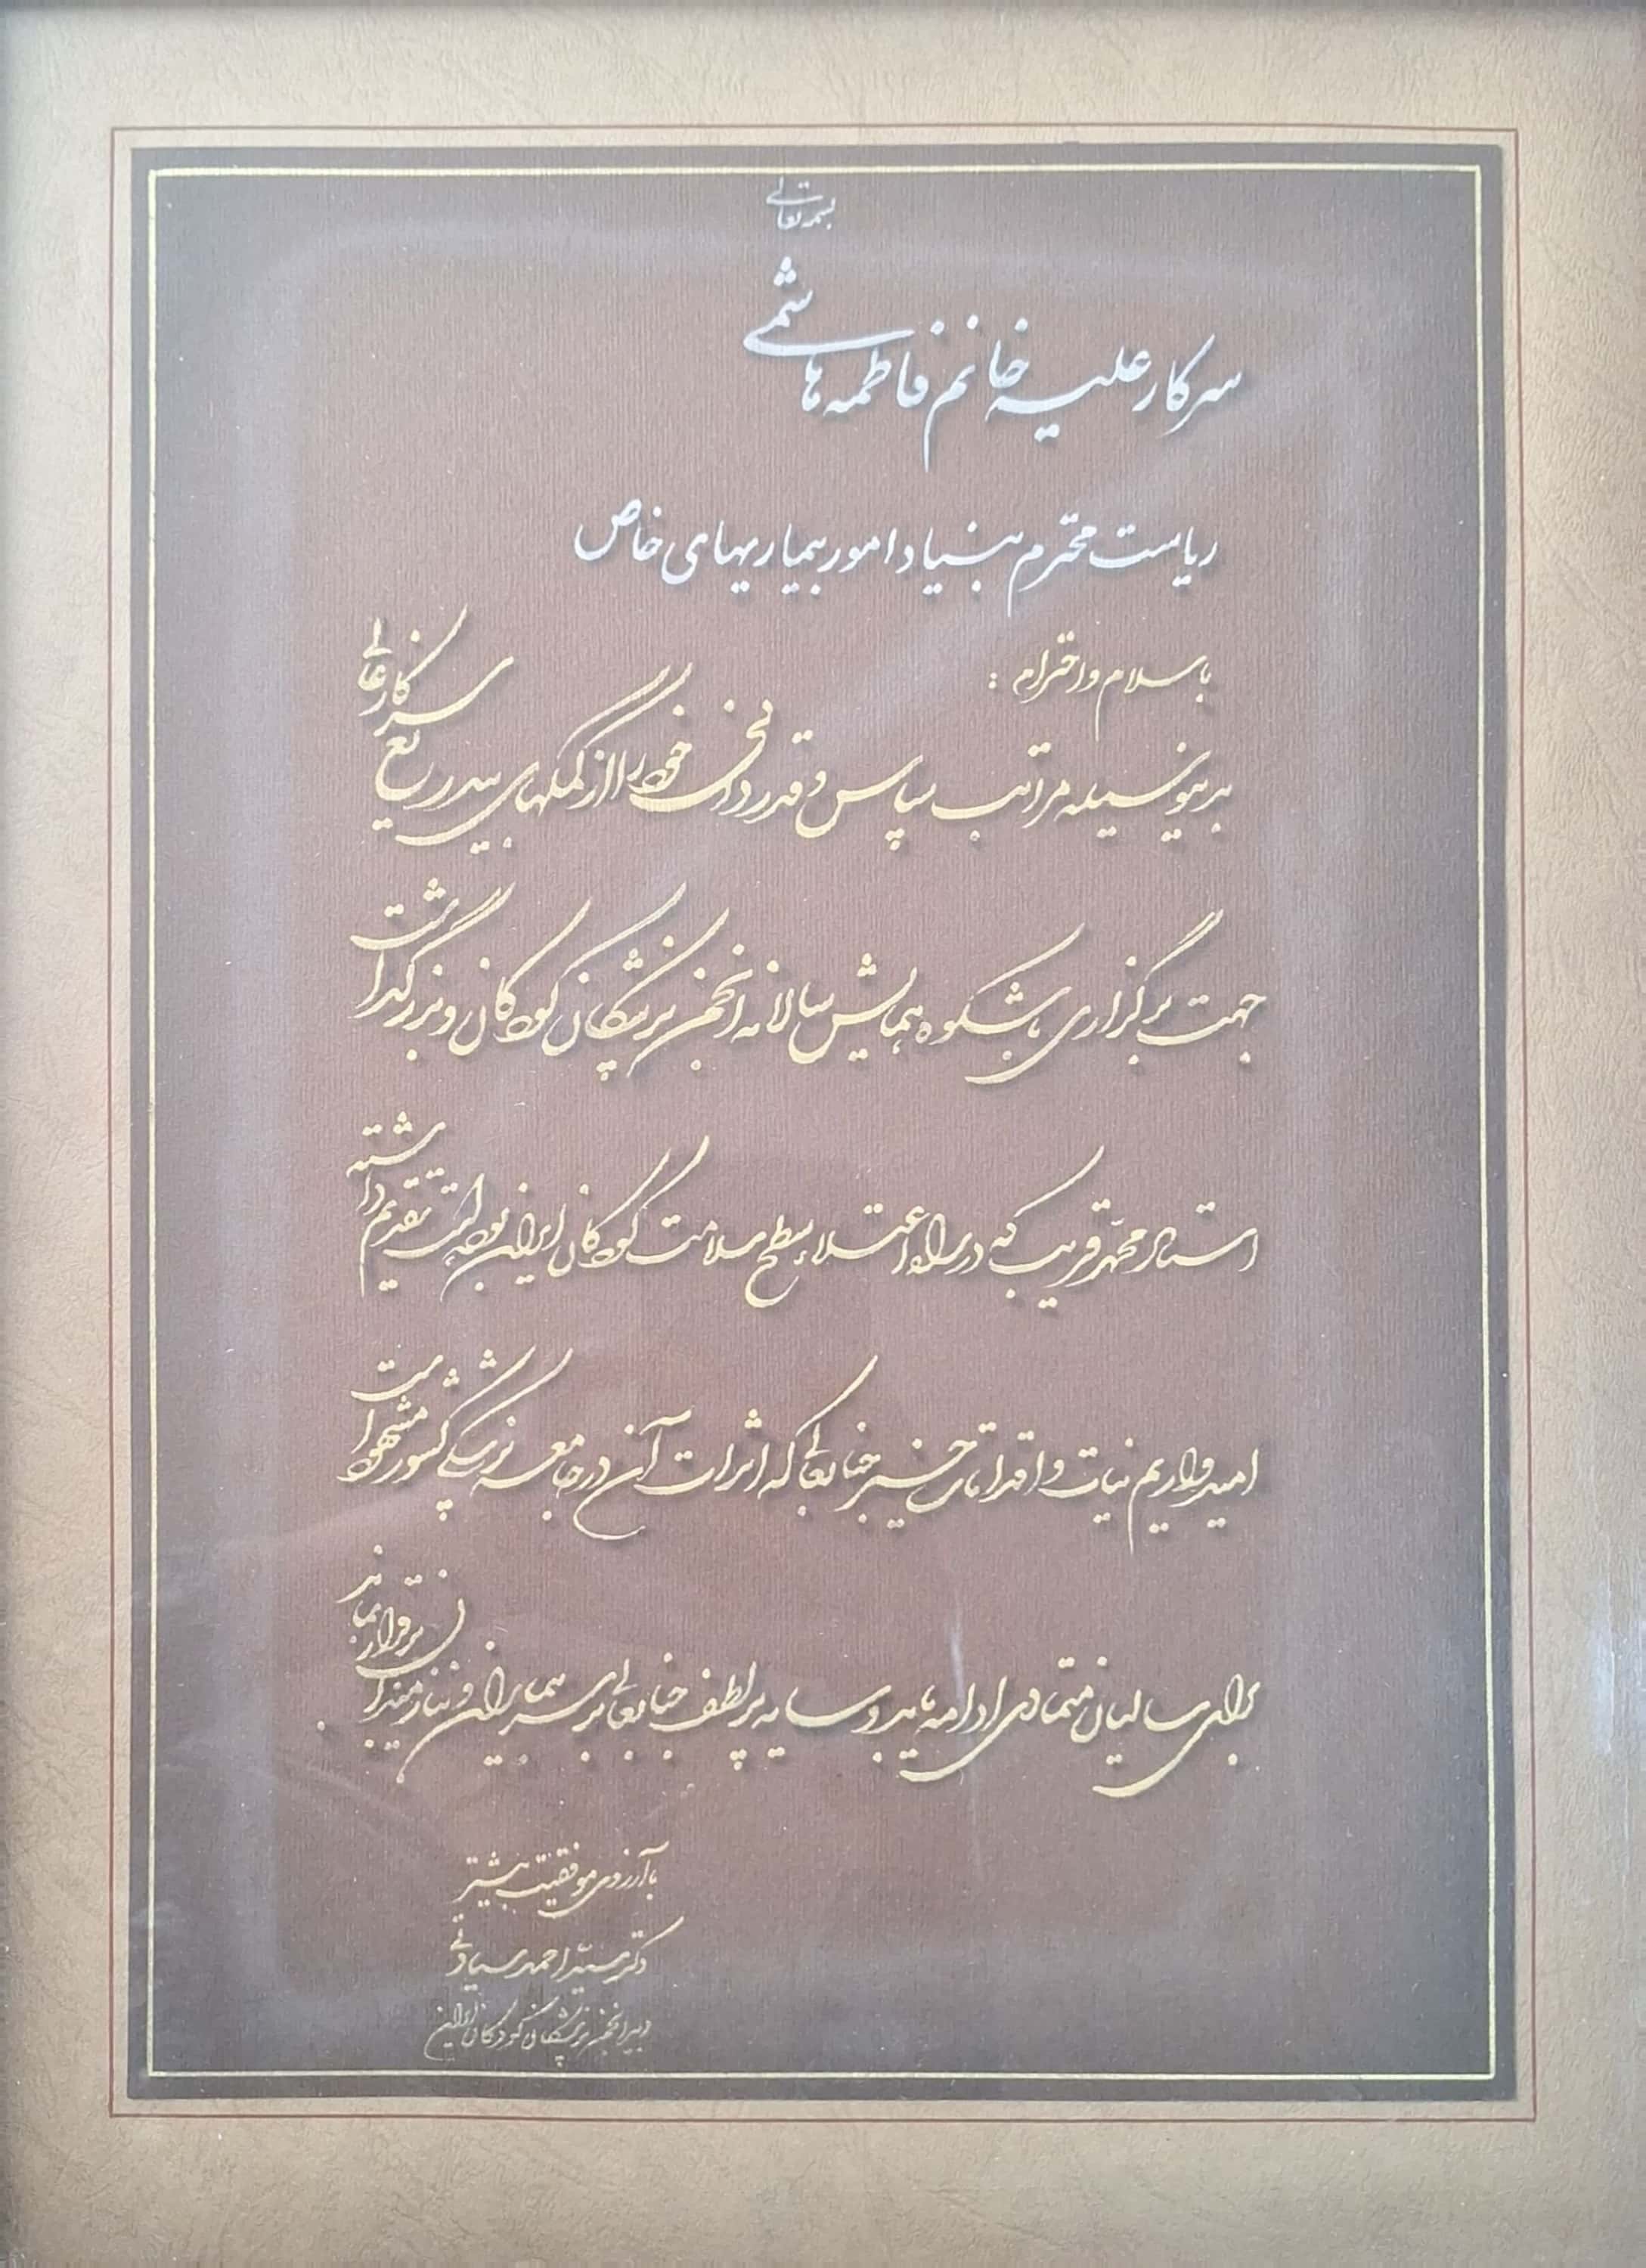 بسمه تعالی
سرکار علیه خانم فاطمه هاشمی
ریاست محترم بنیاد امور بیماریهای خاص
با سلام و احترام :
بدینوسیله مراتب سپاس و قدردانی خود را از کمکهای بیدریغ سرکار عالی
جهت برگزاری باشکوه همایش سالانه انجمن پزشکان کودکان و بزرگداشت
استاد محمد قریب که در راه اعتلاء سطح سلامت کودکان ایران بوده است تقدیم داشته
امیدواریم نیات و اقدامات خیر جنابعالی که اثرات آن در جامعه پزشکی کشور مشهود است
برای سالیان متمادی ادامه یابد و سایه پر لطف جنابعالی بر سر بیماران و نیازمندان برقرار بماند .
با آرزوی موفقیت بیشتر
دکتر سید احمد سیادتی
دبیر انجمن پزشکان کودکان ایران